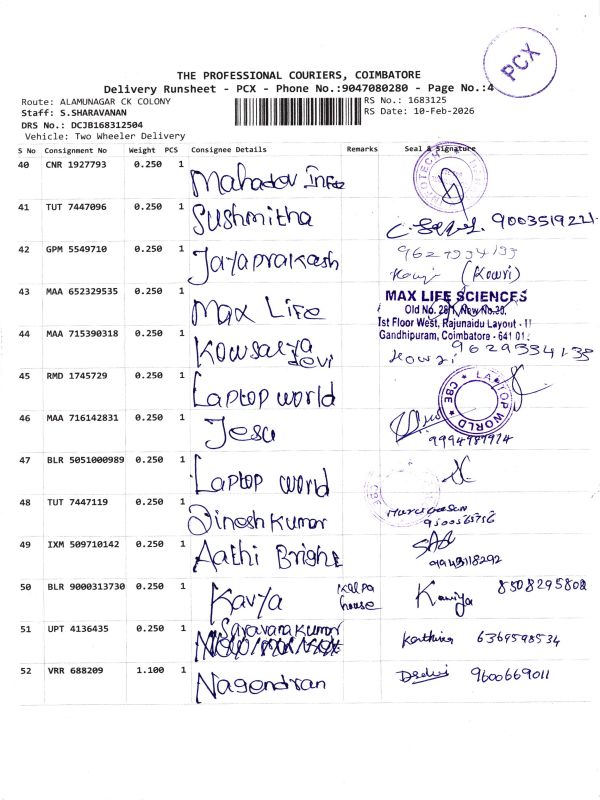 PCX
THE PROFESSIONAL COURIERS, COIMBATORE
Delivery Runsheet - PCX - Phone No.:9047080280 - Page No.:4
Route: ALAMUNAGAR CK COLONY
RS No.: 1683125
Staff: S.SHARAVANAN
RS Date: 10-Feb-2026
DRS No.: DCJB168312504
Vehicle: Two Wheeler Delivery
S No Consignment No Weight PCS Consignee Details Remarks Seal & Signature
40 CNR 1927793 0.250 1 Mahadev Infoz
41 TUT 7447096 0.250 1 Sushmitha 9003519221
42 GPM 5549710 0.250 1 Jayaprakash
(Kowri)
43 MAA 652329535 0.250 1 Max Life
MAX LIFE SCIENCES
Old No. 28 New No.20.
1st Floor West, Rajunaidu Layout - II
Gandhipuram, Coimbatore - 641 01
44 MAA 715390318 0.250 1 Kowsalya devi 9629334133
45 RMD 1745729 0.250 1 Laptop world
LAPTOP WORLD CBE
46 MAA 716142831 0.250 1 Jesu
47 BLR 5051000989 0.250 1 Laptop world
48 TUT 7447119 0.250 1 Dinesh Kumar
49 IXM 509710142 0.250 1 Aathi Bright 9943118292
50 BLR 9000313730 0.250 1 Kavya Kalpa house Kaviya 8508295802
51 UPT 4136435 0.250 1 Saravana Kumar Karthika 6369598534
52 VRR 688209 1.100 1 Nagendran 9600669011